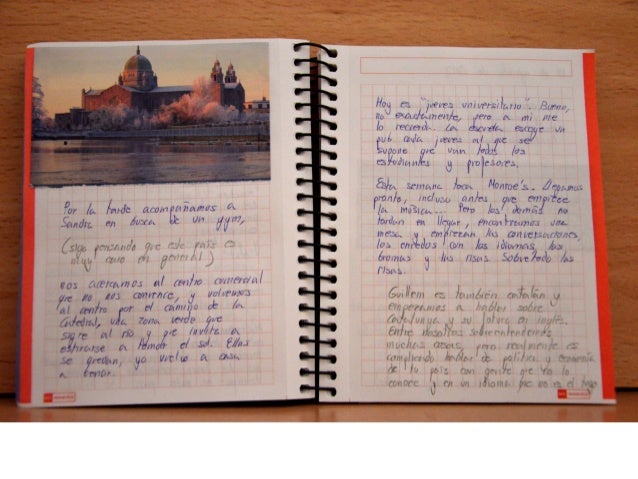 Por la tarde acompañamos a
Sandra en busca de un gym,
(sigo pensando que este país es
muy caro en general)
nos acercamos al centro comercial
que no nos convence, y volvemos
al centro por el camino de la
Catedral, una zona verde que
sigue al río y que invita a
estirarse a tomar el sol. Ellas
se quedan, yo vuelvo a casa
a cenar.
Hoy es "jueves universitario". Bueno,
no exactamente, pero a mi me
lo recuerda. La escuela escoge un
pub cada jueves al que se
supone que van todos los
estudiantes y profesores.
Esta semana toca Monroe's. Llegamos
pronto, incluso antes que empiece
la música... Pero los demás no
tardan en llegar, encontramos una
mesa y empiezan las conversaciones,
los enredos con los idiomas, las
bromas y las risas. Sobretodo las
risas.
Guillem es también catalán y
empezamos a hablar sobre
Catalunya y su futuro en inglés.
Entre nosotros sobreentendemos
muchas cosas, pero realmente es
complicado hablar de política y economía
de tu país con gente que no lo
conoce y en un idioma que no es el tuyo